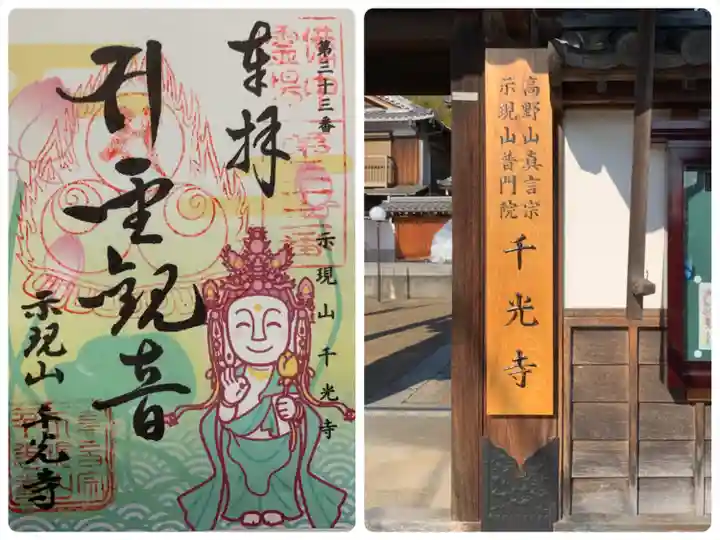 奉拝
第三十三番 示現山千光寺
聖観音
示現山 千光寺
高野山真言宗
示現山普門院
千光寺